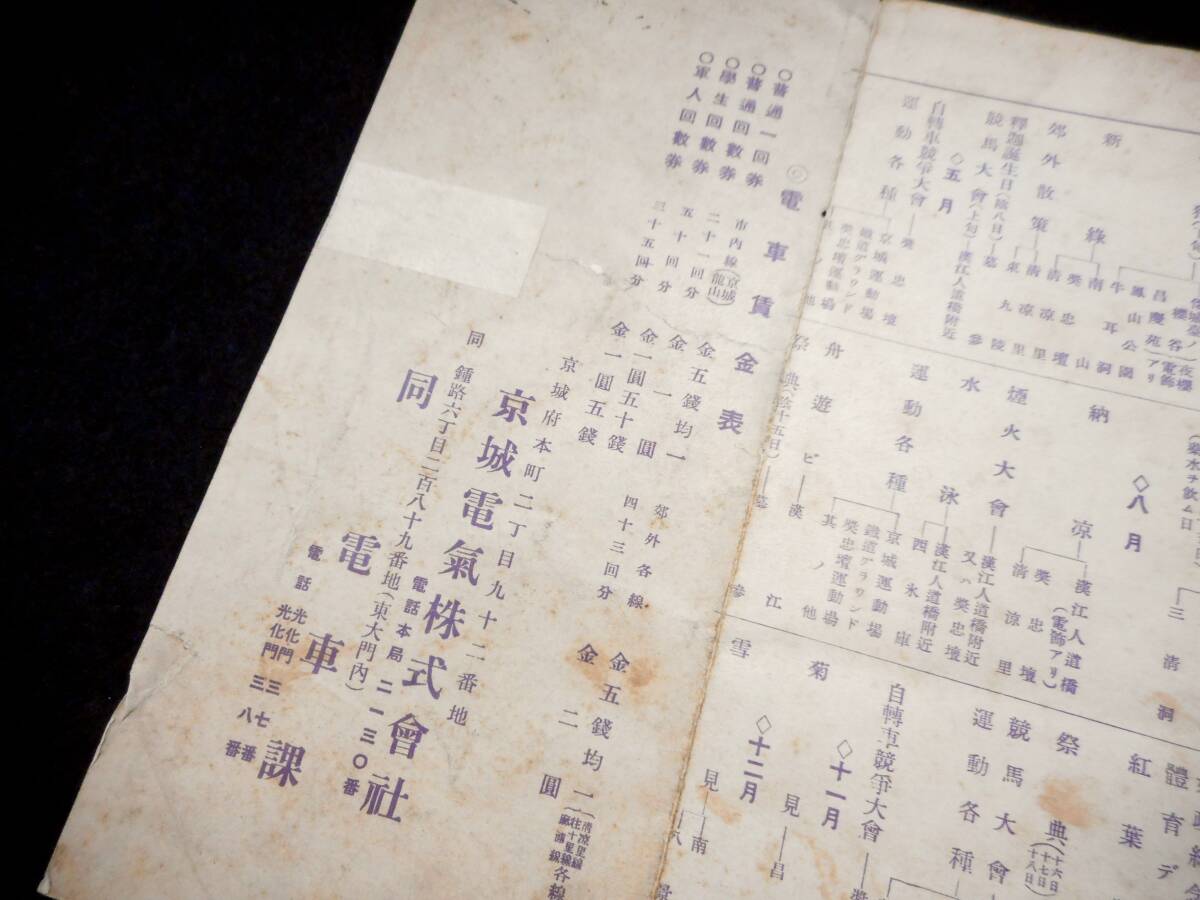 新綠
南山
牛耳洞
鳳山公園
昌慶苑
櫻谷
(夜櫻電飾アリ)
郊外散策
獎忠壇
淸凉里
淸凉里
東九陵
釋迦誕生日(陰八日)
墓參
競馬大會(上旬)
漢江人道橋附近
◇五月
自轉車競爭大會
獎忠壇
運動各種
京城運動場
鐵道グラウンド
獎忠壇運動場
其ノ他
三淸洞
◇八月
納凉
漢江人道橋
(電飾アリ)
獎忠壇
淸凉里
煙火大會
漢江人道橋附近
又ハ獎忠壇
水泳
漢江人道橋附近
西氷庫
運動各種
京城運動場
鐵道グラウンド
獎忠壇運動場
其ノ他
舟遊ビ
漢江
祭典(陰十五日)
墓參
體育デ
紅葉
祭典(十六日十七日十八日)
競馬大會
運動各種
◇十一月
自轉車競爭大會
菊見
昌
◇十二月
雪見
南
◎電車賃金表
○普通一回券 市內線(京城龍山) 金五錢均一 郊外各線 金五錢均一(淸凉里線往十里線麻浦線各線
○普通回數券 二十一回分 金一圓 四十三回分 金二圓
○學生回數券 五十回分 金一圓五十錢
○軍人回數券 三十五回分 金一圓五錢
京城府本町二丁目九十二番地
京城電氣株式會社
電話本局二一三〇番
同 鍾路六丁目二百八十九番地(東大門內)
同電車課
電話 光化門 三七番
光化門 三八番